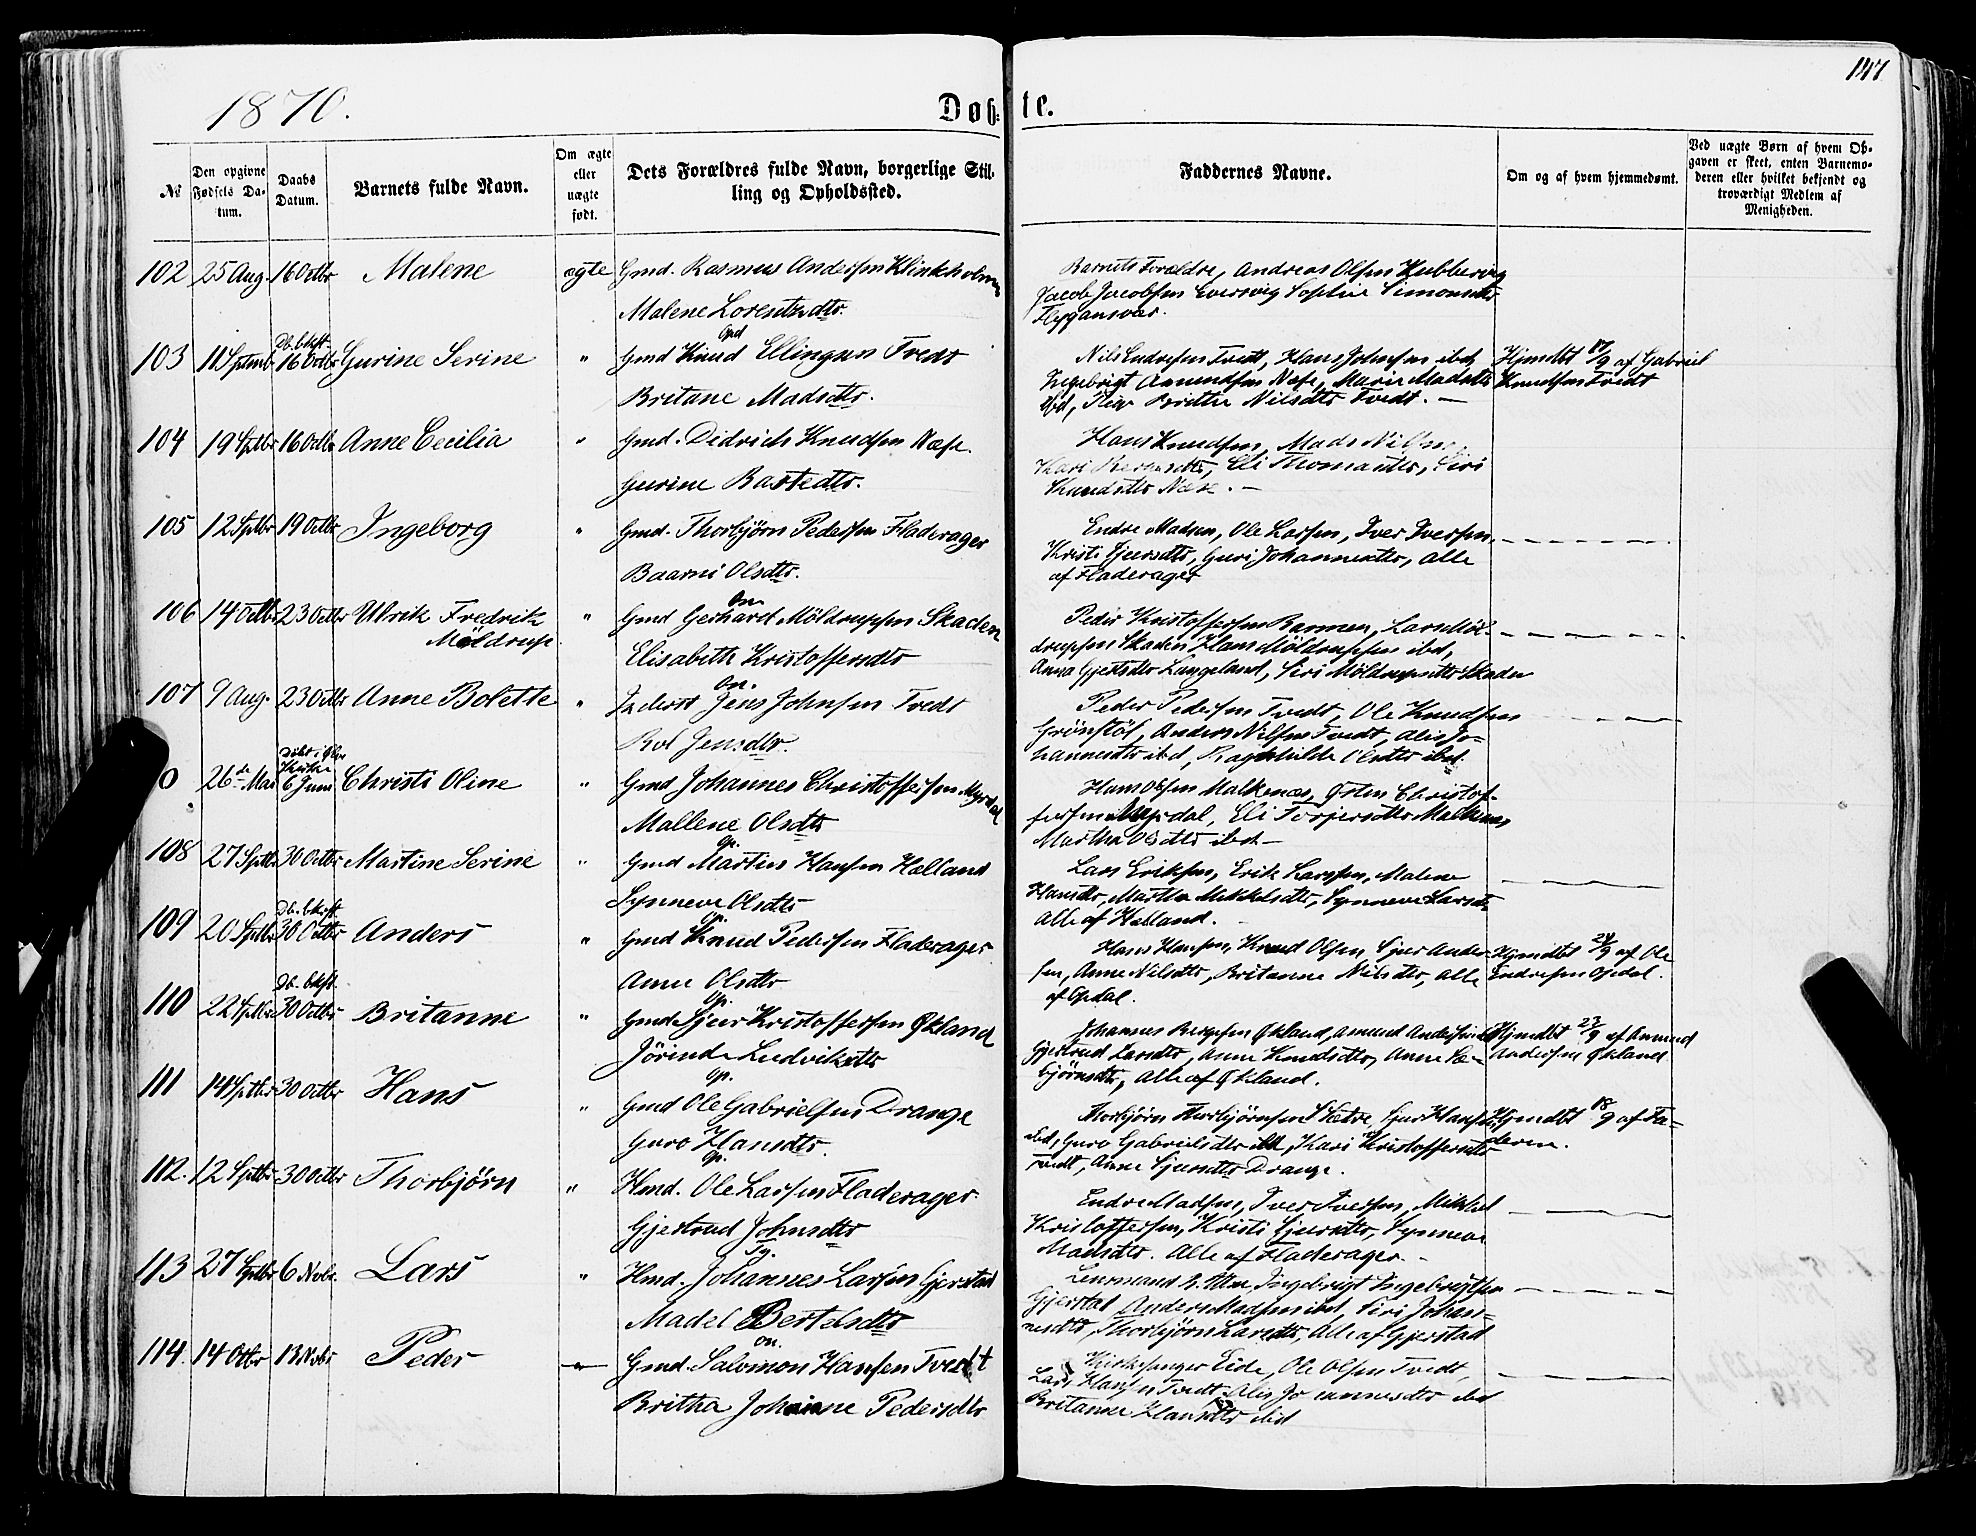 147
1870.
Døbte.
№
Den opgivne Fødsels Datum.
Daabs Datum.
Barnets fulde Navn.
Om ægte eller uægte født.
Dets Forældres fulde Navn, borgerlige Stilling og Opholdssted.
Faddernes Navne.
Om og af hvem hjemmedømt.
Ved uægte Børn af hvem Opgaven er skeet, enten Barnemoderen eller hvilket bekjendt og troværdigt Medlem af Menigheden.
102 25 Aug. 16 Octbr Malene ægte Gmd. Rasmus Andersen Klinkholmen
Malene Lorentsdtr.
Barnets Forældre, Andreas Olsen Hubbervig
Jacob Jacobsen Eversvig Sophie Simonsdtr
103 11 Septemb Db. bkft. 16 Octbr Gurine Serine " Gmd Knud Ellingsen Tvedt
Britane Madsdtr.
Nils Endresen Tvedt, Hans Johnsen ibd,
Ingebrigt Aamundsen Næse, Marie Madsdtr
Brithe Nilsdtr Tvedt. —
Hjmdbt 17/9 af Gabriel
Knudsen Tvedt
104 19 Septbr 16 Octbr Anne Cecilia " Gmd. Didrich Knudsen Næse
Gurine Bastedtr.
Hans Knudsen, Mads Nilsen,
Kari Berentsdtr, Eli Thomasdtr, Siri
Knudsdtr Næse. —
105 12 Septbr 19 Octbr Ingeborg " Gmd. Thorbjörn Pedersen Fladerager
Baarni Olsdtr.
Endre Madsen, Ole Larsen, Iver Iversen
Kristi Sjursdtr, Guri Johannesdtr, Alle
af Fladerager
106 14 Octbr 23 Octbr Ulrik Fredrik
Möldrup
" Gmd Gerhard Möldrupsen Skaden
Elisabeth Kristoffersdtr
Peder Kristoffersen Barmen, Lars Möl-
drupsen Skaden Hans Möldrupsen ibd,
Anna Gjertsdtr Langeland, Siri Möldrupsdtr Skaden
107 9 Aug. 23 Octbr Anne Bolette " Inderst Jens Johnsen Tvedt
Rol Jensdtr.
Peder Pedersen Tvedt, Ole Knudsen
Grönstöl, Anders Nilsen Tvedt, Alis Jo-
hannesdtr ibd, Ragnhilde Olsdtr ibd.
0 26de Mai 6 Juni Christi Oline " Gmd Johannes Christoffersen Myrdal
Mallene Olsdtr
Hans Olsen Malkenæs, Østen Christof-
fersen Myrdal, Eli Torjersdtr Malkenæs
Martha Olsdtr ibd —
108 27 Septbr 30 Octbr Martine Serine " Gmd Martin Hansen Halland
Synneve Olsdtr
Lars Eriksen, Erik Larssen, Malene
Hansdtr, Martha Mikkelsdtr, Synneve Larsdtr
Alle af Halland.
109 20 Septbr Db. bkft. 30 Octbr Anders " Gmd Knud Pedersen Fladerager
Anne Olsdtr
Hans Hansen, Knud Olsen, Sjur Ander-
sen, Anne Nilsdtr, Britanne Nilsdtr, Alle
af Opdal.
Hjmdbt 24/9 af Ole
Endresen Opdal.
110 22 Septbr Db. bkft 30 Octbr Britanne " Gmd Sjur Kristoffersen Økland
Jörinde Ludviksdtr
Johannes Bergesen Økland, Amund Andersen ibd
Gjertrud Larsdtr, Anne Knudsdtr, Anne Tor-
björnsdtr, Alle af Økland.
Hjmdbt 23/9 af Amund
Andersen Økland
111 14 Septbr 30 Octbr Hans " Gmd Ole Gabrielsen Drange
Guro Hansdtr.
Thorbjörn Thorbjörnsen Sætre, Sjur Hansen
ibd, Guro Gabrielsdtr ibd, Kari Kristoffersdtr
Tvedt, Anne Sjursdtr Drange.
Hjmdbt 18/9 af Fa-
deren.
112. 12 Septbr 30 Octbr Thorbjörn " Hmd. Ole Larsen Fladerager
Gjertrud Johnsdtr
Endre Madsen, Iver Iversen, Mikkel
Kristoffersen, Kristi Sjursdtr, Synneve
Madsdtr. Alle af Fladerager.
113 27 Septbr 6 Novbr. Lars " Hmd. Johannes Larsen Gjerstad
Madel Bertelsdtr
Lensmand Ingebrigt Ingebrigtsen
Gjerstad Anders Madsen ibd, Siri Johan-
nesdtr, Thorbjörn Larsdtr, Alle af Gjerstad
114. 14 Octbr 13 Novbr Peder Gmd. Salomon Hansen Tvedt
Britha Johanne Pedersdtr
Kirkesanger Eide, Ole Olsen Tvedt,
Lars Hansen Tvedt Alis Johannesdtr ibd
Britanne Hansdtr ibd